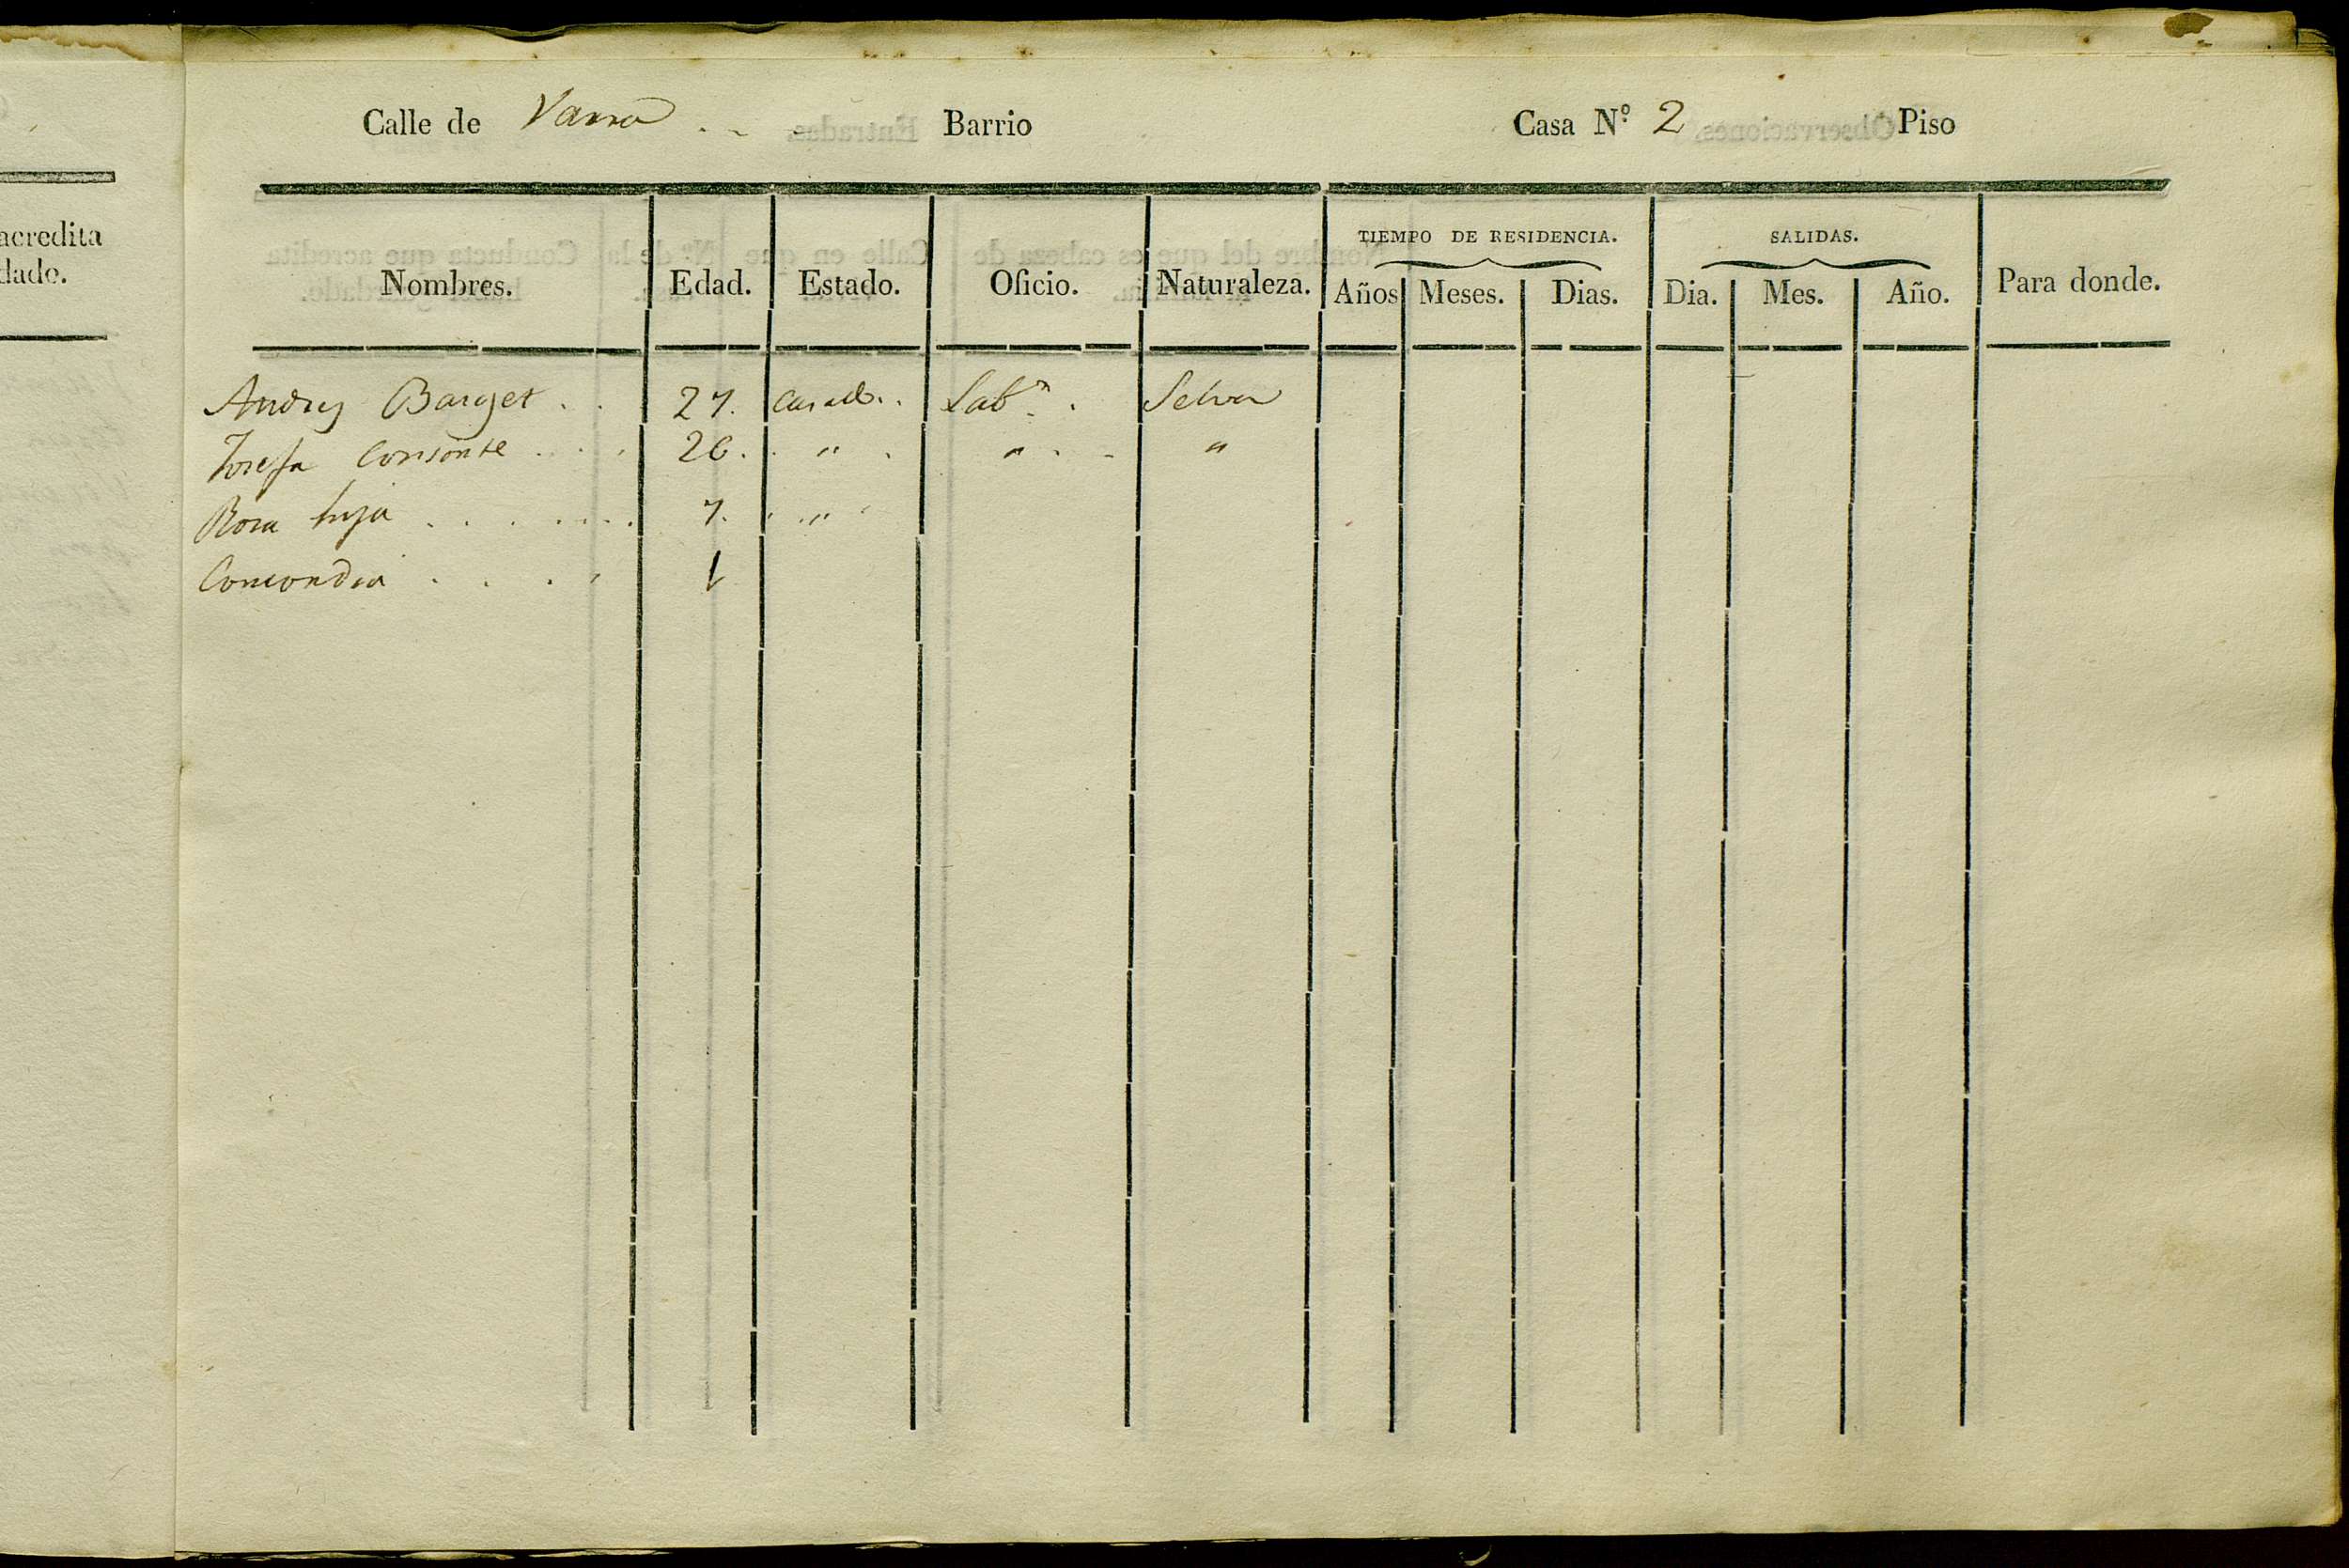 acredita
dado.
Calle de Varra Barrio Casa Nº 2 Piso
TIEMPO DE RESIDENCIA. SALIDAS.
Nombres. Edad. Estado. Oficio. Naturaleza. Años Meses. Dias. Dia. Mes. Año. Para donde.
Andres Barget . . 27. Casado . . Labr . Selva
Josefa Consonte . . . 26 . . " . " . . "
Rosa hija . . . . . . . 7. . . "
Concordia . . . . 1